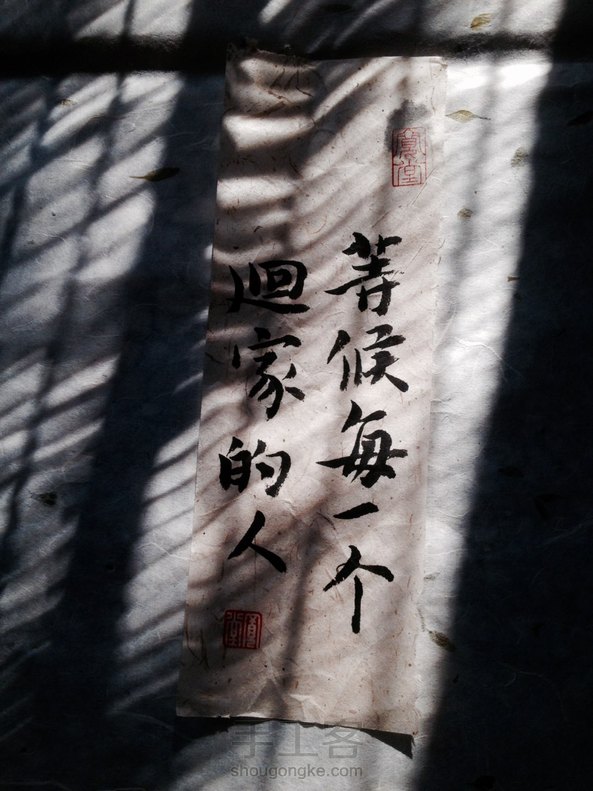 等候每一个
迴家的人
手工客
shougongke.com